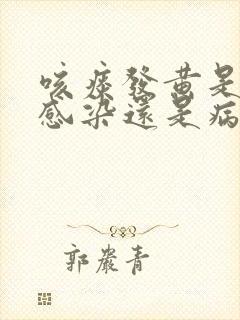 咳痰發黃是
感染還是病
郭嚴青